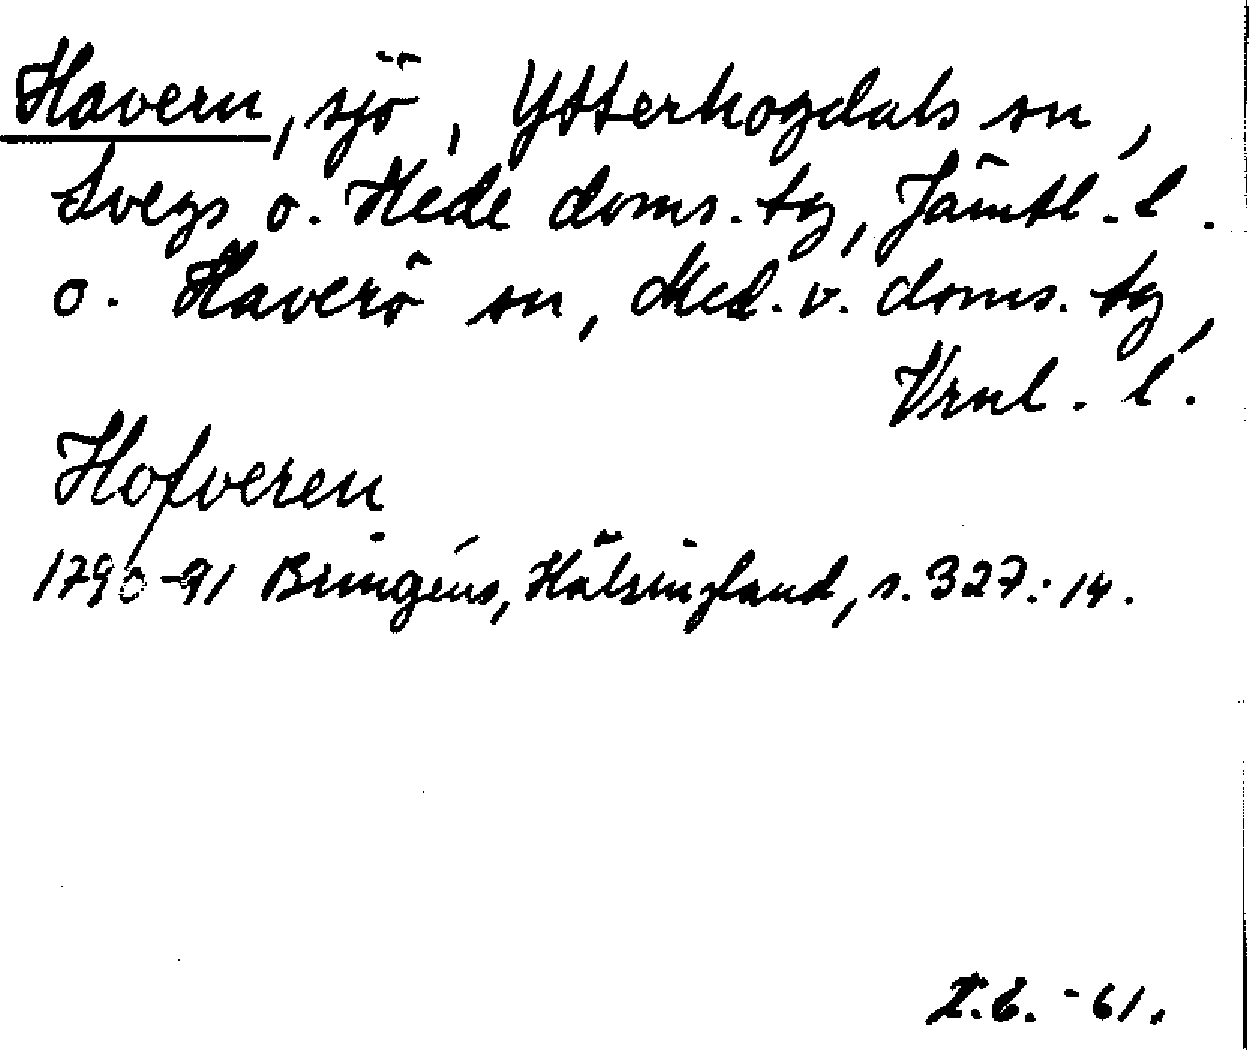 Havern, sjö, Ytterhogdals sn,
Svegs o. Hede doms.tg, Jämtl. l.
o. Haverö sn, Med. v. doms.tg,
Vrnl. l.
Hofveren
1790-91 Bringéus, Hälsingland, s. 327:14.
-61.